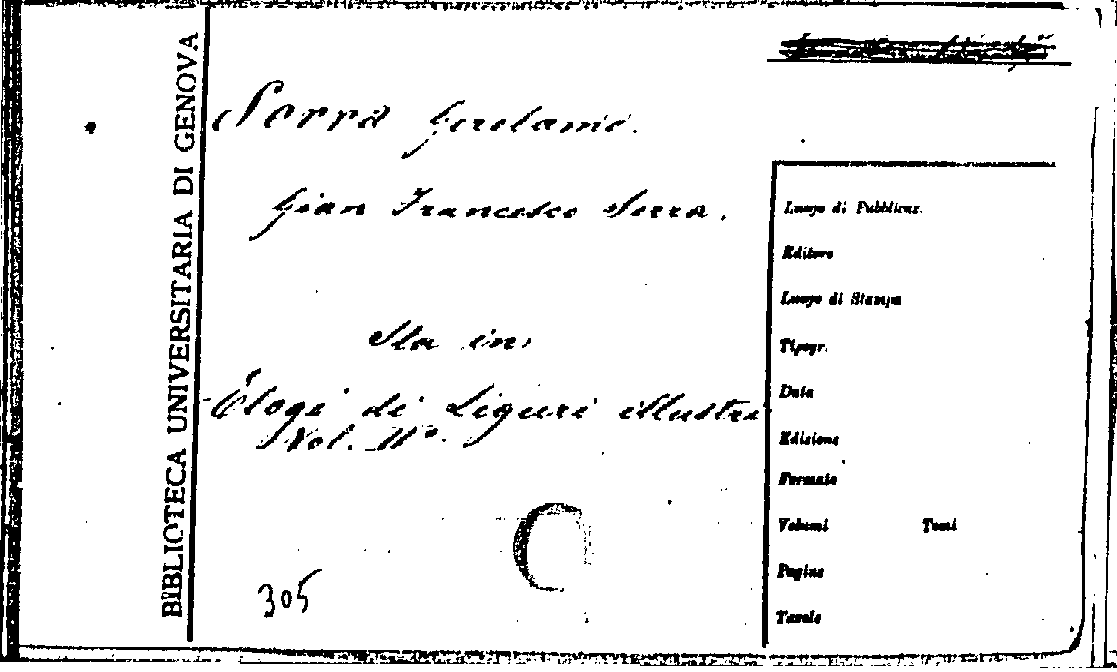 BIBLIOTECA UNIVERSITARIA DI GENOVA
Serra Gerolamo.
Gian Francesco Serra.
Sta in:
Elogi di Liguri illustri
Vol. IIº.
305
Luogo di Pubblicaz.
Editore
Luogo di Stampa
Tipogr.
Data
Edizione
Formato
Volumi Tomi
Pagine
Tavole